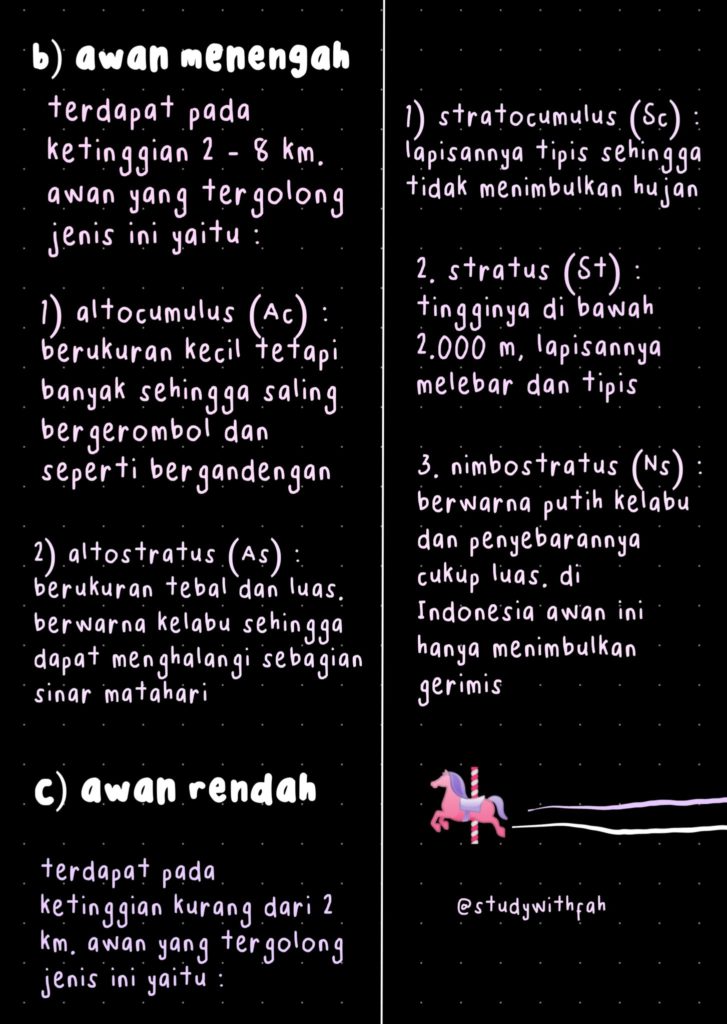 b) awan menengah
terdapat pada
ketinggian 2 - 8 km.
awan yang tergolong
jenis ini yaitu :
1) altocumulus (Ac) :
berukuran kecil tetapi
banyak sehingga saling
bergerombol dan
seperti bergandengan
2) altostratus (As) :
berukuran tebal dan luas.
berwarna kelabu sehingga
dapat menghalangi sebagian
sinar matahari
c) awan rendah
terdapat pada
ketinggian kurang dari 2
km. awan yang tergolong
jenis ini yaitu :
1) stratocumulus (Sc) :
lapisannya tipis sehingga
tidak menimbulkan hujan
2. stratus (St) :
tingginya di bawah
2.000 m, lapisannya
melebar dan tipis
3. nimbostratus (Ns) :
berwarna putih kelabu
dan penyebarannya
cukup luas. di
Indonesia awan ini
hanya menimbulkan
gerimis
@studywithfah